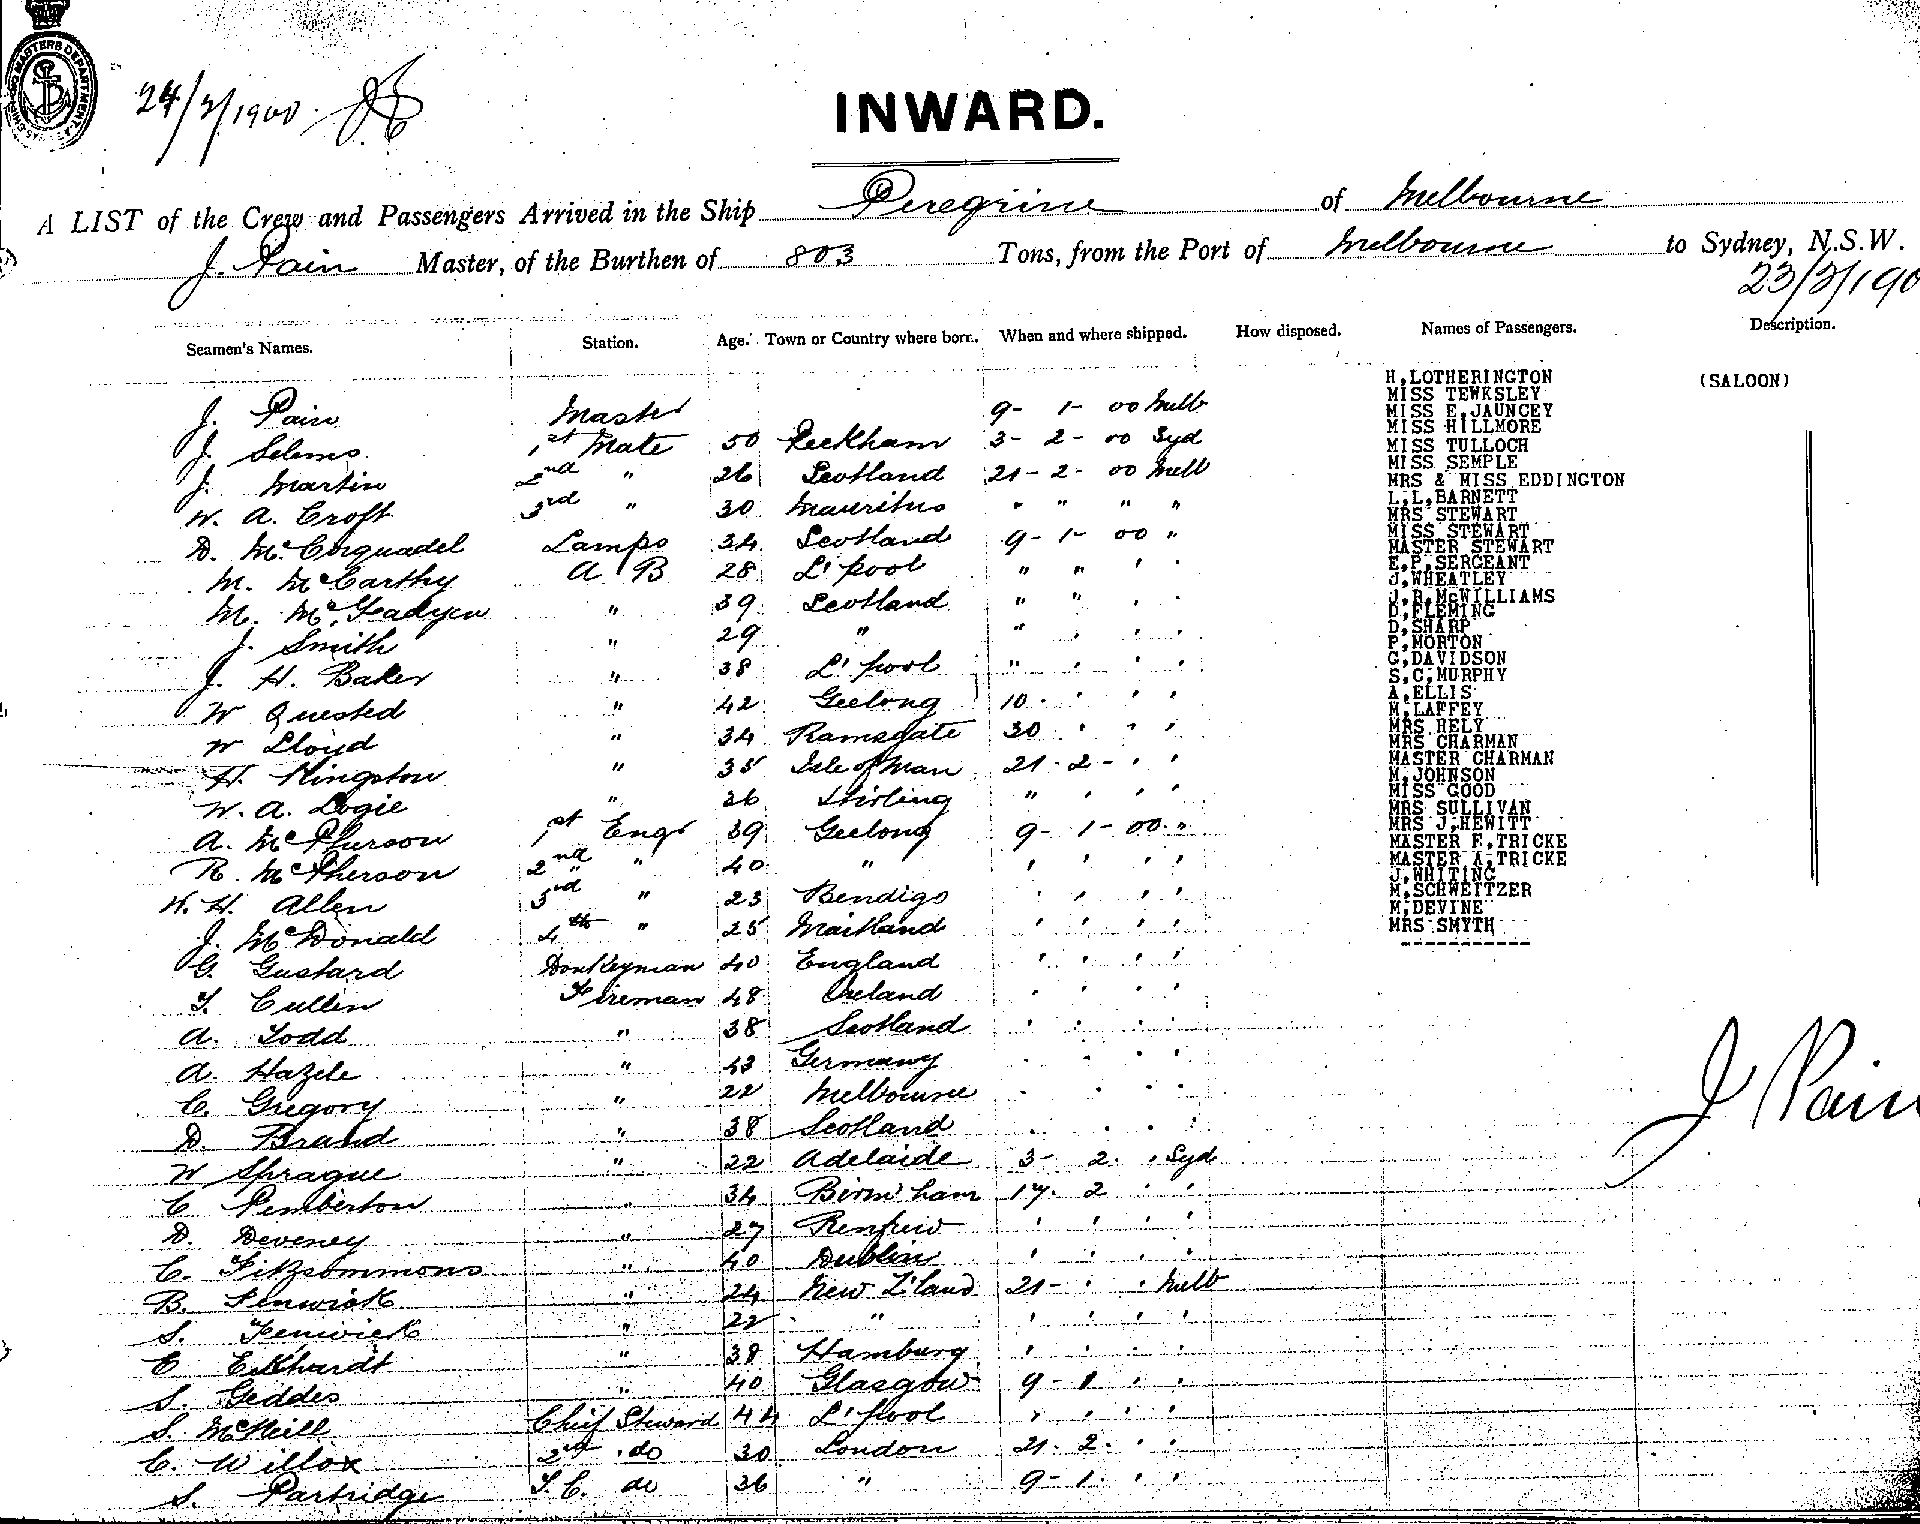 SHIPPING MASTERS DEPARTMENT
24/2/1900.
INWARD.
A LIST of the Crew and Passengers Arrived in the Ship Peregrine of Melbourne
J. Pain Master, of the Burthen of 803 Tons, from the Port of Melbourne to Sydney, N.S.W.
23/2/190
Seamen's Names. Station. Age. Town or Country where born. When and where shipped. How disposed. Names of Passengers. Description.
J. Pain Master 9- 1- 00 Melb
J. Selems. 1st Mate 50 Peckham 3- 2- 00 Syd
J. Martin 2nd " 26 Scotland 21- 2- 00 Melb
W. A. Croft 3rd " 30 Mauritius " " " "
D. McCorquadel Lamps 34 Scotland 9- 1- 00 "
M. McCarthy A B 28 L'pool " " ' '
M. McFadyen " 39 Scotland " " ' '
J. Smith " 29 " " ' ' '
J. H. Baker " 38 L'pool " ' ' '
W Quested " 42 Geelong 10 ' ' '
W Lloyd " 34 Ramsgate 30 ' ' '
H. Kingston " 35 Isle of Man 21- 2- ' '
W. A. Logie " 26 Stirling " ' ' '
A. McPherson 1st Engr 39 Geelong 9- 1- 00 "
R. McPherson 2nd " 40 " ' ' ' '
W. H. Allen 3rd " 23 Bendigo ' ' ' '
J. McDonald 4th " 25 Maitland ' ' ' '
G. Gustard Donkeyman 40 England ' ' ' '
T. Cullen Fireman 48 Ireland ' ' ' '
A. Todd " 38 Scotland ' ' ' '
A. Hazele " 43 Germany ' ' ' '
C. Gregory " 22 Melbourne ' ' ' '
D. Brand " 38 Scotland ' ' ' '
W Sprague " 22 Adelaide 3- 2. ' Syd
C Pemberton " 34 Birm'ham 17. 2 ' '
D. Deveney " 27 Renfrew ' ' ' '
C. Fitzsommons " 40 Dublin ' ' ' '
B. Fenwick " 24 New Z'land 21- ' ' Melb
S. Fenwick " 22 " ' ' ' '
E Ekhardt " 38 Hamburg ' ' ' '
S. Geddes " 40 Glasgow 9- 1 ' '
S. McNeill Chief Steward 44 L'pool ' ' ' '
C. Willox 2nd do 30 London 21. 2. ' '
S. Partridge S. C. do 36 " 9- 1. ' '
H.LOTHERINGTON (SALOON)
MISS TEWKSLEY
MISS E.JAUNCEY
MISS HILLMORE
MISS TULLOCH
MISS SEMPLE
MRS & MISS EDDINGTON
L.L.BARNETT
MRS STEWART
MISS STEWART
MASTER STEWART
E.P.SERGEANT
J.WHEATLEY
J.R.McWILLIAMS
D.FLEMING
D.SHARP
P.MORTON
G.DAVIDSON
S.C.MURPHY
A.ELLIS
M.LAFFEY
MRS HELY
MRS CHARMAN
MASTER CHARMAN
M.JOHNSON
MISS GOOD
MRS SULLIVAN
MRS J.HEWITT
MASTER F.TRICKE
MASTER A.TRICKE
J.WHITING
M.SCHWEITZER
M.DEVINE
MRS SMYTH
J Pain